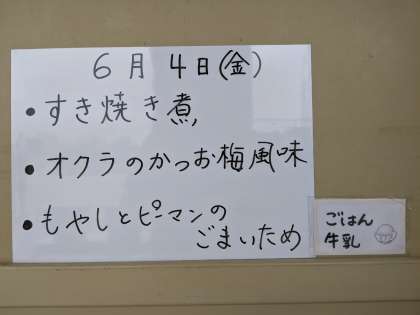 6月4日(金)
・すき焼き煮
・オクラのかつお梅風味
・もやしとピーマンの
ごまいため
ごはん
牛乳